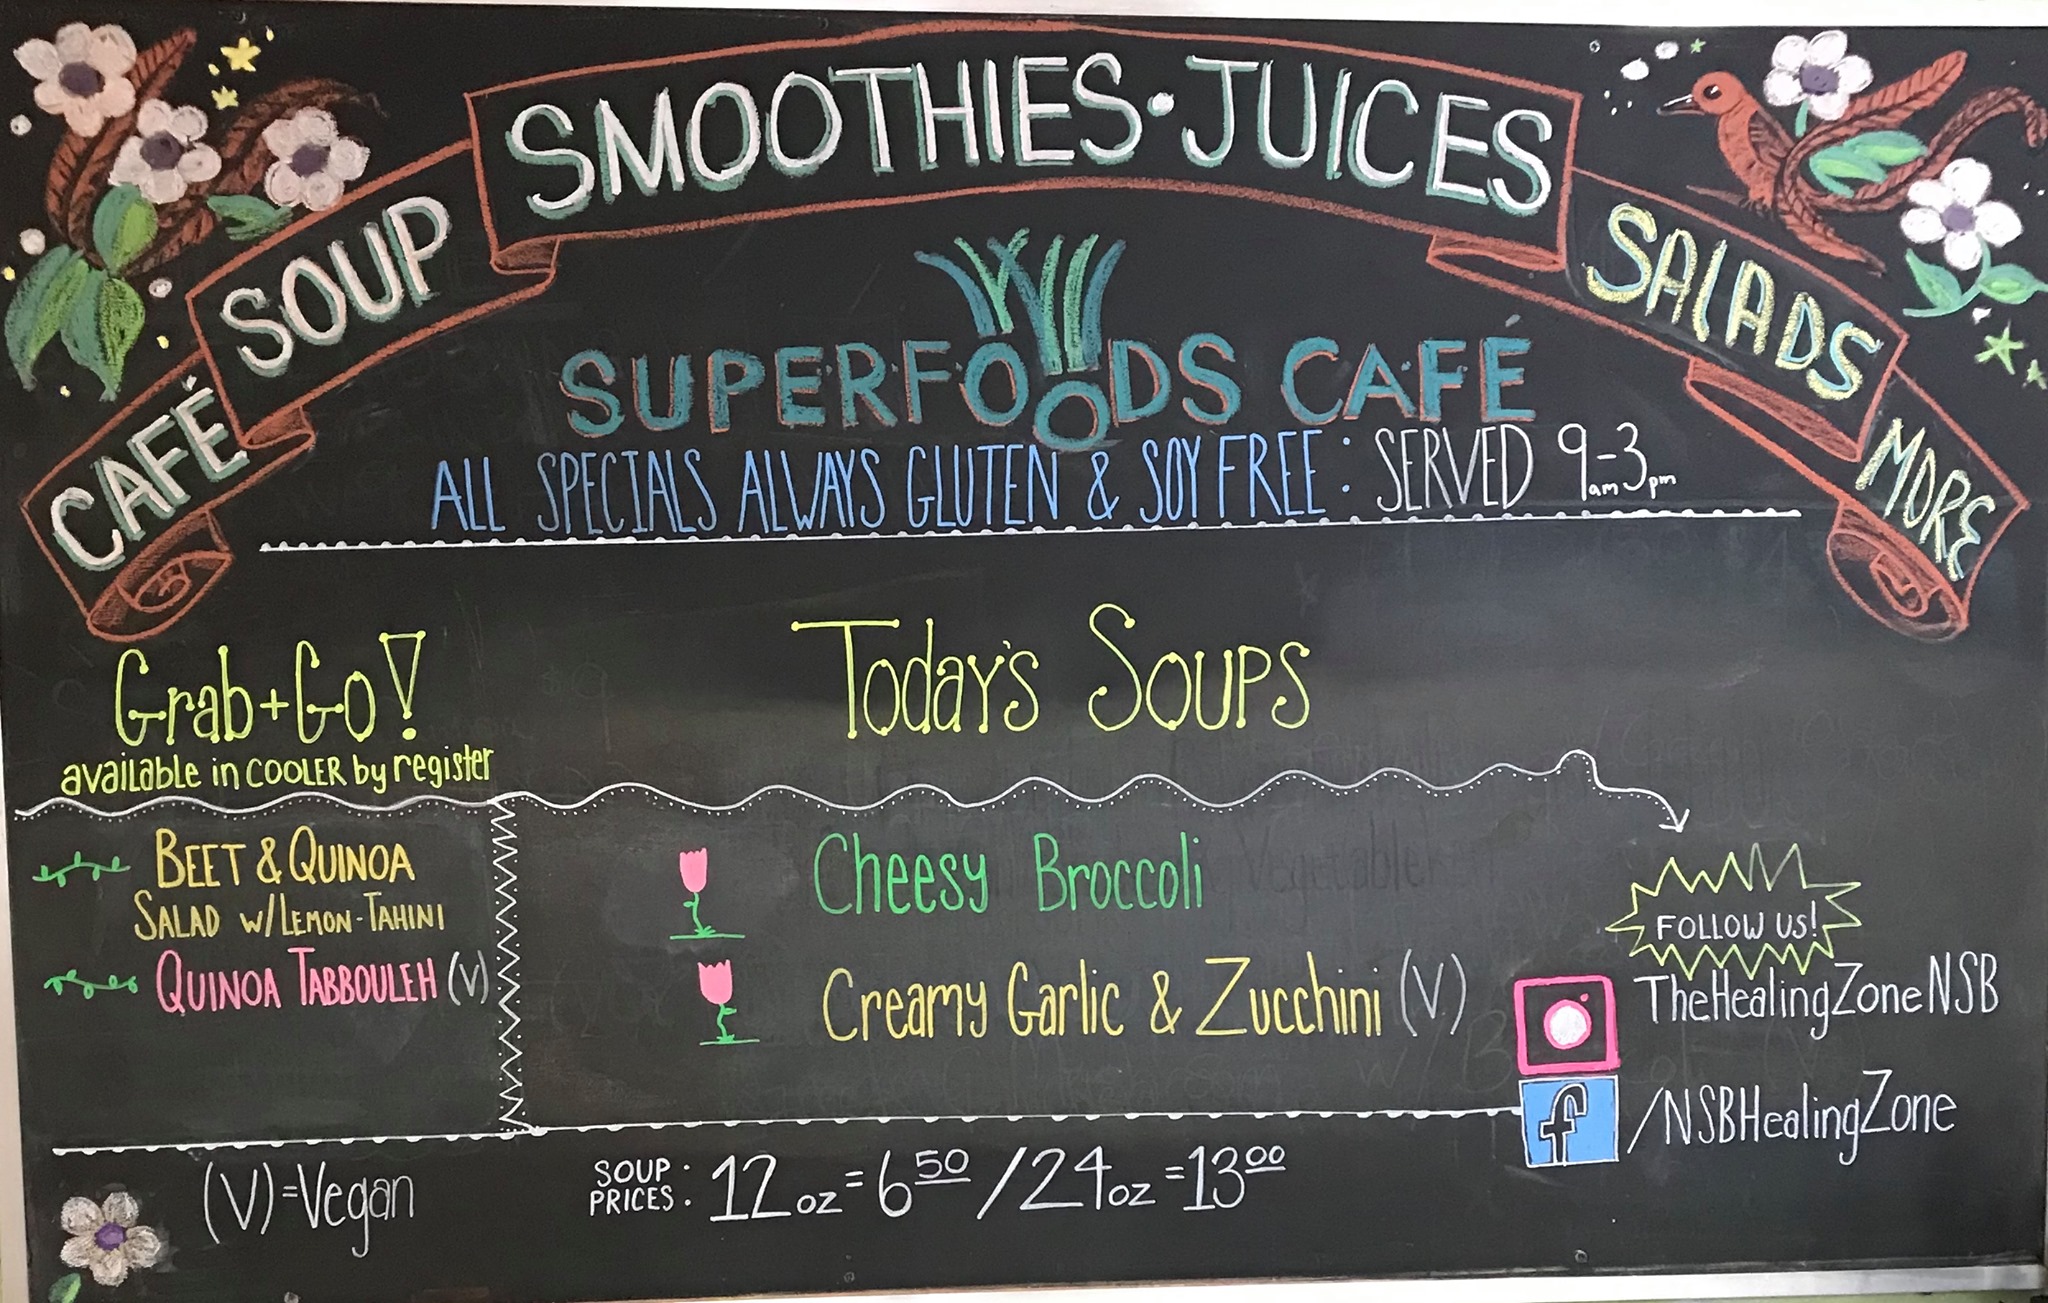 CAFÉ SOUP SMOOTHIES • JUICES SALADS MORE
SUPERFOODS CAFÉ
ALL SPECIALS ALWAYS GLUTEN & SOY FREE: SERVED 9am-3pm
Grab+Go!
available in COOLER by register
BEET & QUINOA
SALAD W/LEMON-TAHINI
QUINOA TABBOULEH (V)
Today's Soups
Cheesy Broccoli
Creamy Garlic & Zucchini (V)
FOLLOW US!
TheHealingZoneNSB
f /NSBHealingZone
(V)=Vegan
SOUP PRICES: 12oz=6 50 /24oz=13 00